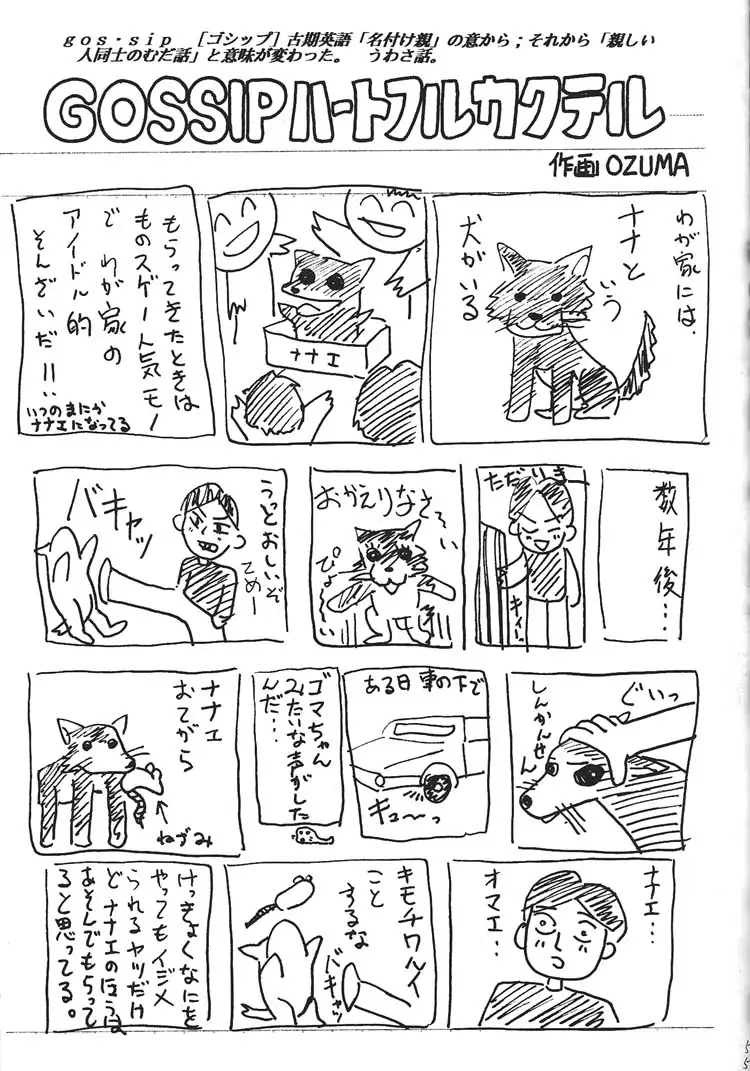 gos・sip　［ゴシップ］古期英語「名付け親」の意から；それから「親しい
人同士のむだ話」と意味が変わった。　うわさ話。
GOSSIPハートフルカクテル
作画 OZUMA
わが家には、
ナナと
いう
犬がいる
ナナエ
もらってきたときは
ものスゲー人気モノ
で わが家の
アイドル的
そんざいだ!!
いつのまにか
ナナエになってる
数年後…
ただいまー
キィー
おかえりなさーい
ぴょーい
うっとおしいぞ
てめー
バキャッ
ぐいっ
しんかんせん
ある日 車の下で
キュ〜っ
ゴマちゃん
みたいな声がした
んだ…
ナナエ
おてがら
ねずみ
ナエ…
オマエ…
キモチワルイ
こと
するな
バキャッ
けっきょくなにを
やってもイジメ
られるヤツだけ
どナナエのほうは
あそんでもらって
ると思ってる。
5
5